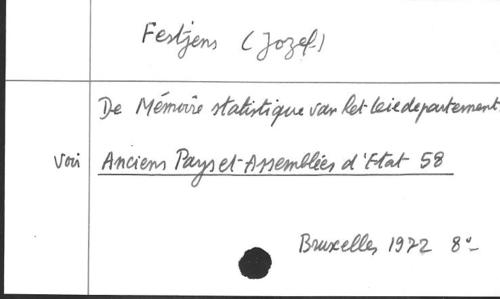 Festjens (Jozef)
De Mémoire statistique van het Leiedepartement.
voir Anciens Pays et Assemblées d'Etat 58
Bruxelles 1972 8°